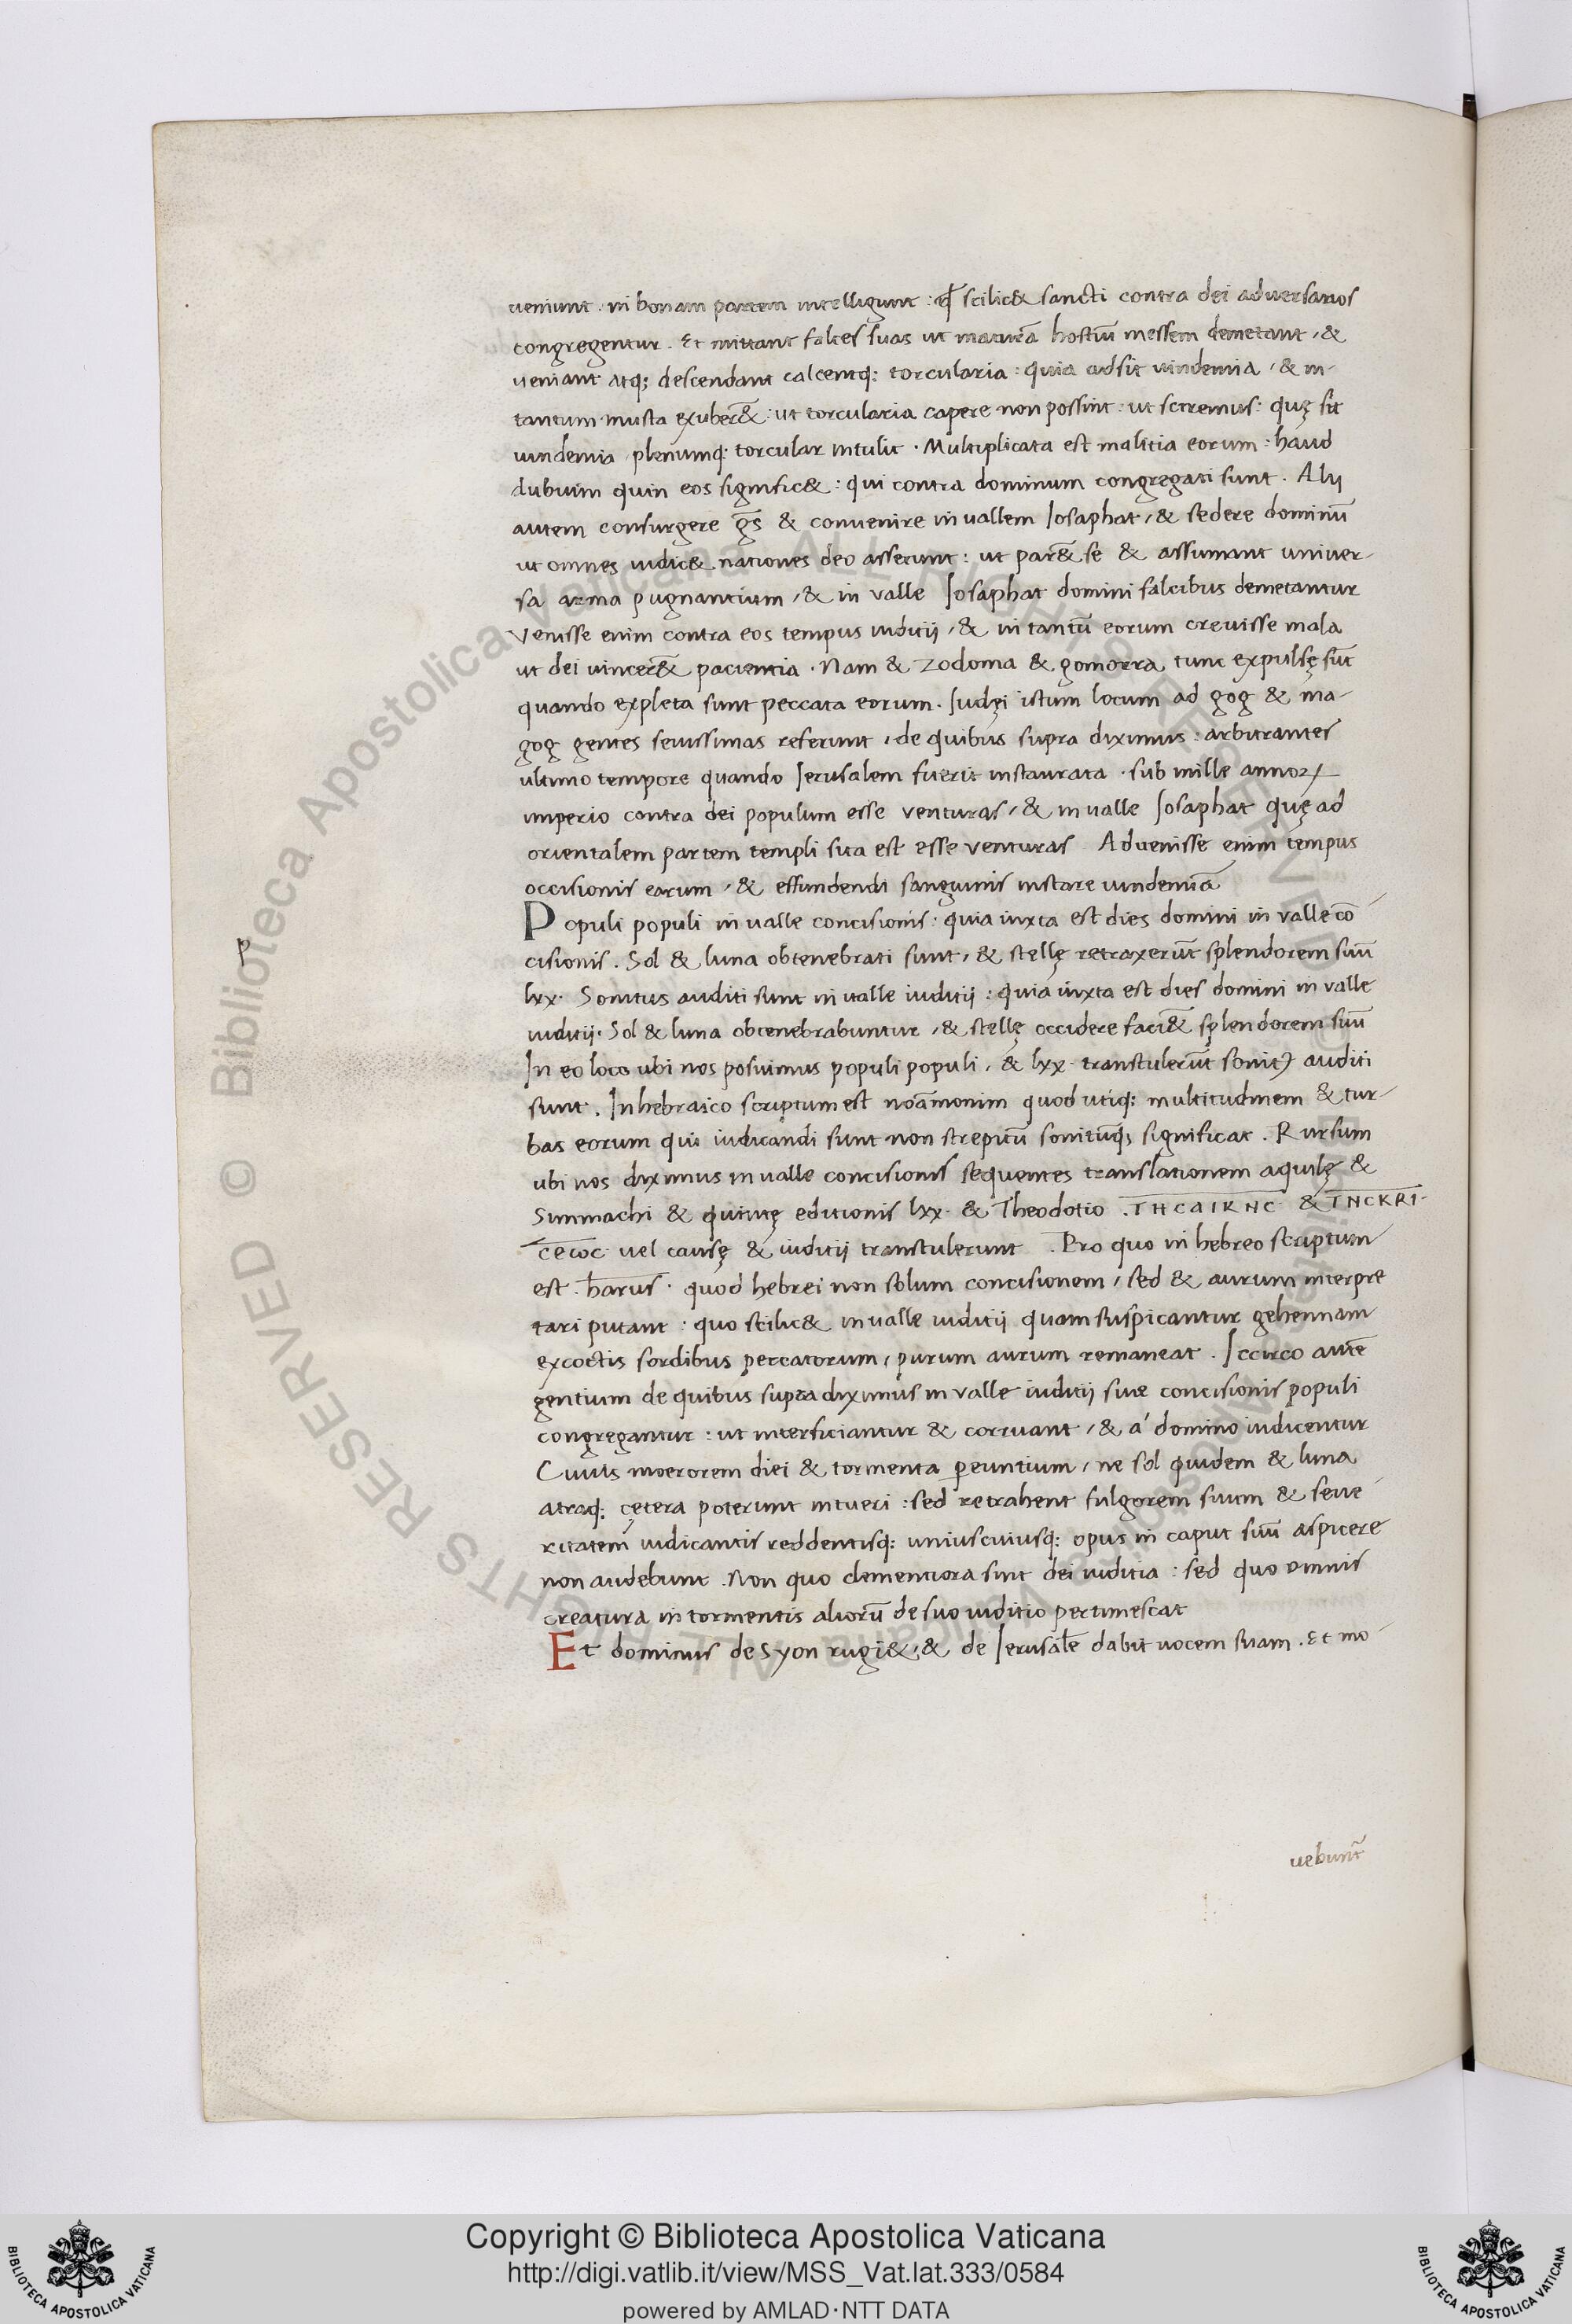 ueniunt. in bonam partem intelligunt: qđ scilic& sancti contra dei aduersarios
congregentur. Et mittant falces suas ut maturā hostiū messem demetant, &
ueniant atq; descendant calcentq: torcularia: quia adsit uindemia, & in-
tantum musta exuber&: ut torcularia capere non possint: ut sciremus: quę sit
uindemia plenumq: torcular intulit. Multiplicata est malitia eorum: haud
dubium quin eos signific&: qui contra dominum congregati sunt. Alij
autem consurgere gēs & conuenire in uallem Iosaphat, & sedere dominū
ut omnes iudic& nationes deo asserunt: ut par& se & assumant uniuer-
sa arma pugnantium, & in valle Iosaphat domini falcibus demetantur
Venisse enim contra eos tempus iuditij, & in tantū eorum creuisse mala
ut dei uincer& pacientia. Nam & zodoma & gomorra tunc expulsę sūt
quando expleta sunt peccata eorum. Iudęi istum locum ad gog & ma-
gog gentes seuissimas referunt, de quibus supra diximus: arbitrantes
ultimo tempore quando Ierusalem fuerit instaurata. sub mille annoꝝ
imperio contra dei populum esse venturas, & in ualle Iosaphat quę ad
orientalem partem templi sita est esse venturas Aduenisse enim tempus
occisionis earum, & effundendi sanguinis instare uindemiā
Populi populi in ualle concisionis: quia iuxta est dies domini in valle cō-
cisionis. Sol & luna obtenebrati sunt, & stellę retraxerūt splendorem suū
lxx. Sonitus auditi sunt in ualle iuditij: quia iuxta est dies domini in valle
iuditij. Sol & luna obtenebrabuntur, & stellę occidere faci& splendorem suū
In eo loco ubi nos posuimus populi populi, & lxx transtulerūt sonitꝰ auditi
sunt. In hebraico scriptum est noāmonim quod utiq: multitudinem & tur-
bas eorum qui iudicandi sunt non strepitū sonitūq; significat. Rursum
ubi nos diximus in ualle concisionis sequentes translationem aquilę &
Simmachi & quintę editionis lxx. & Theodotio. THCAIKHC & THCKRI-
CEωC uel causę & iuditij transtulerunt. Pro quo in hebreo scriptum
est. harus. quod hebrei non solum concisionem, sed & aurum interpre
tari putant: quo scilic& in ualle iuditij quam suspicantur gehennam
excoctis sordibus peccatorum, purum aurum remaneat. Iccirco autē
gentium de quibus supra diximus in valle iuditij siue concisionis populi
congregantur: ut interficiantur & corruant, & á domino iudicentur
Cuius moerorem diei & tormenta ꝑeuntium, ne sol quidem & luna
atraq: cętera poterunt intueri: sed retrahent fulgorem suum & seue
ritatem iudicantis reddentisq: uniuscuiusq: opus in caput suū aspicere
non audebunt. Non quo clementiora sint dei iuditia: sed quo omnis
creatura in tormentis aliorū de suo iuditio pertimescat
Et dominus de Syon rugi&, & de Ierusalē dabit uocem suam. Et mo-
uebunt̄
Copyright © Biblioteca Apostolica Vaticana
http://digi.vatlib.it/view/MSS_Vat.lat.333/0584
powered by AMLAD·NTT DATA